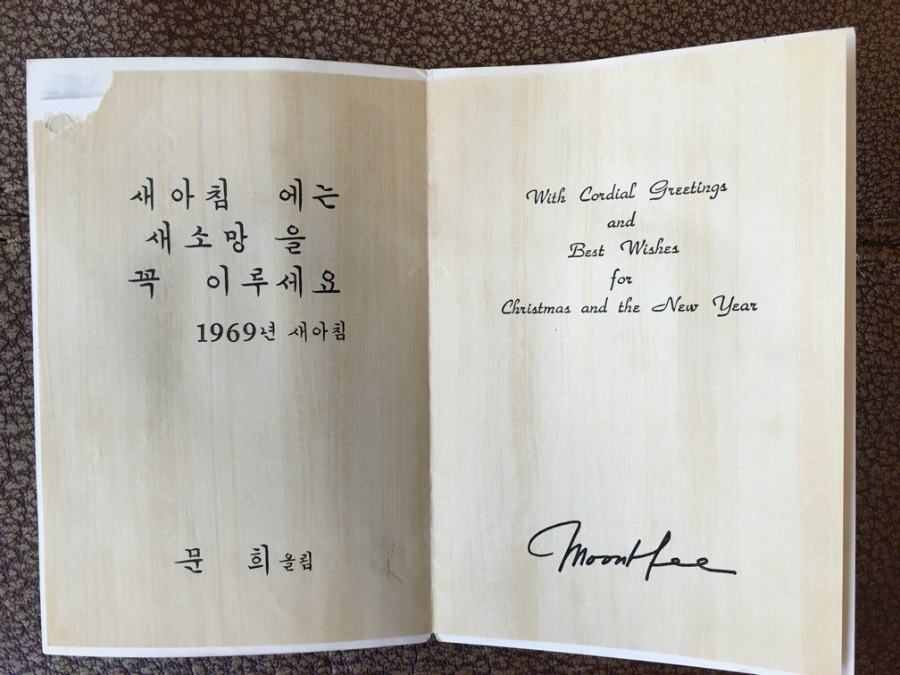 새아침 에는
새소망 을
꼭 이루세요
1969년 새아침
문 희 올림
With Cordial Greetings
and
Best Wishes
for
Christmas and the New Year
Moon Hee